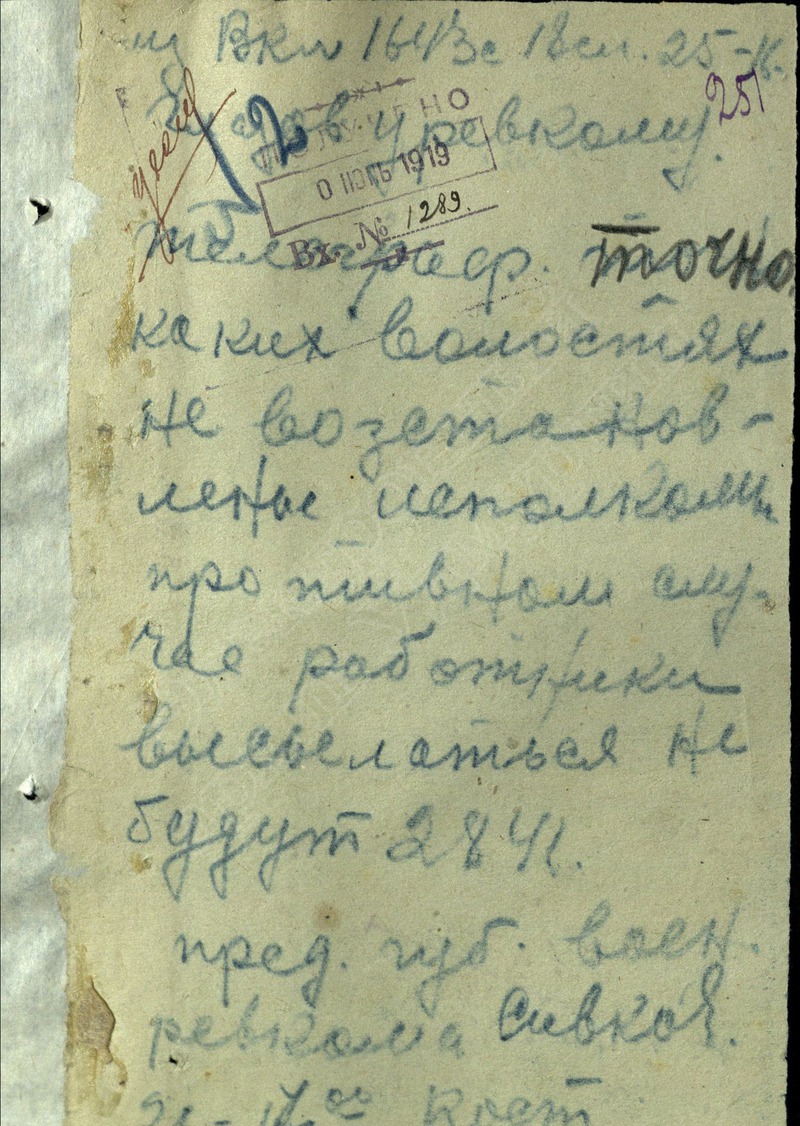 из Вкл 1643с 18сл. 25-К.
251
12
ПОЛУЧЕНО
уревкому.
1919
Вх. № 1289.
телеграф. точно
каких волостях
не возстанов-
лены исполкомы
противном слу-
чае работники
высылаться не
будут 2841.
пред. губ. воен.
ревкома Сивков.